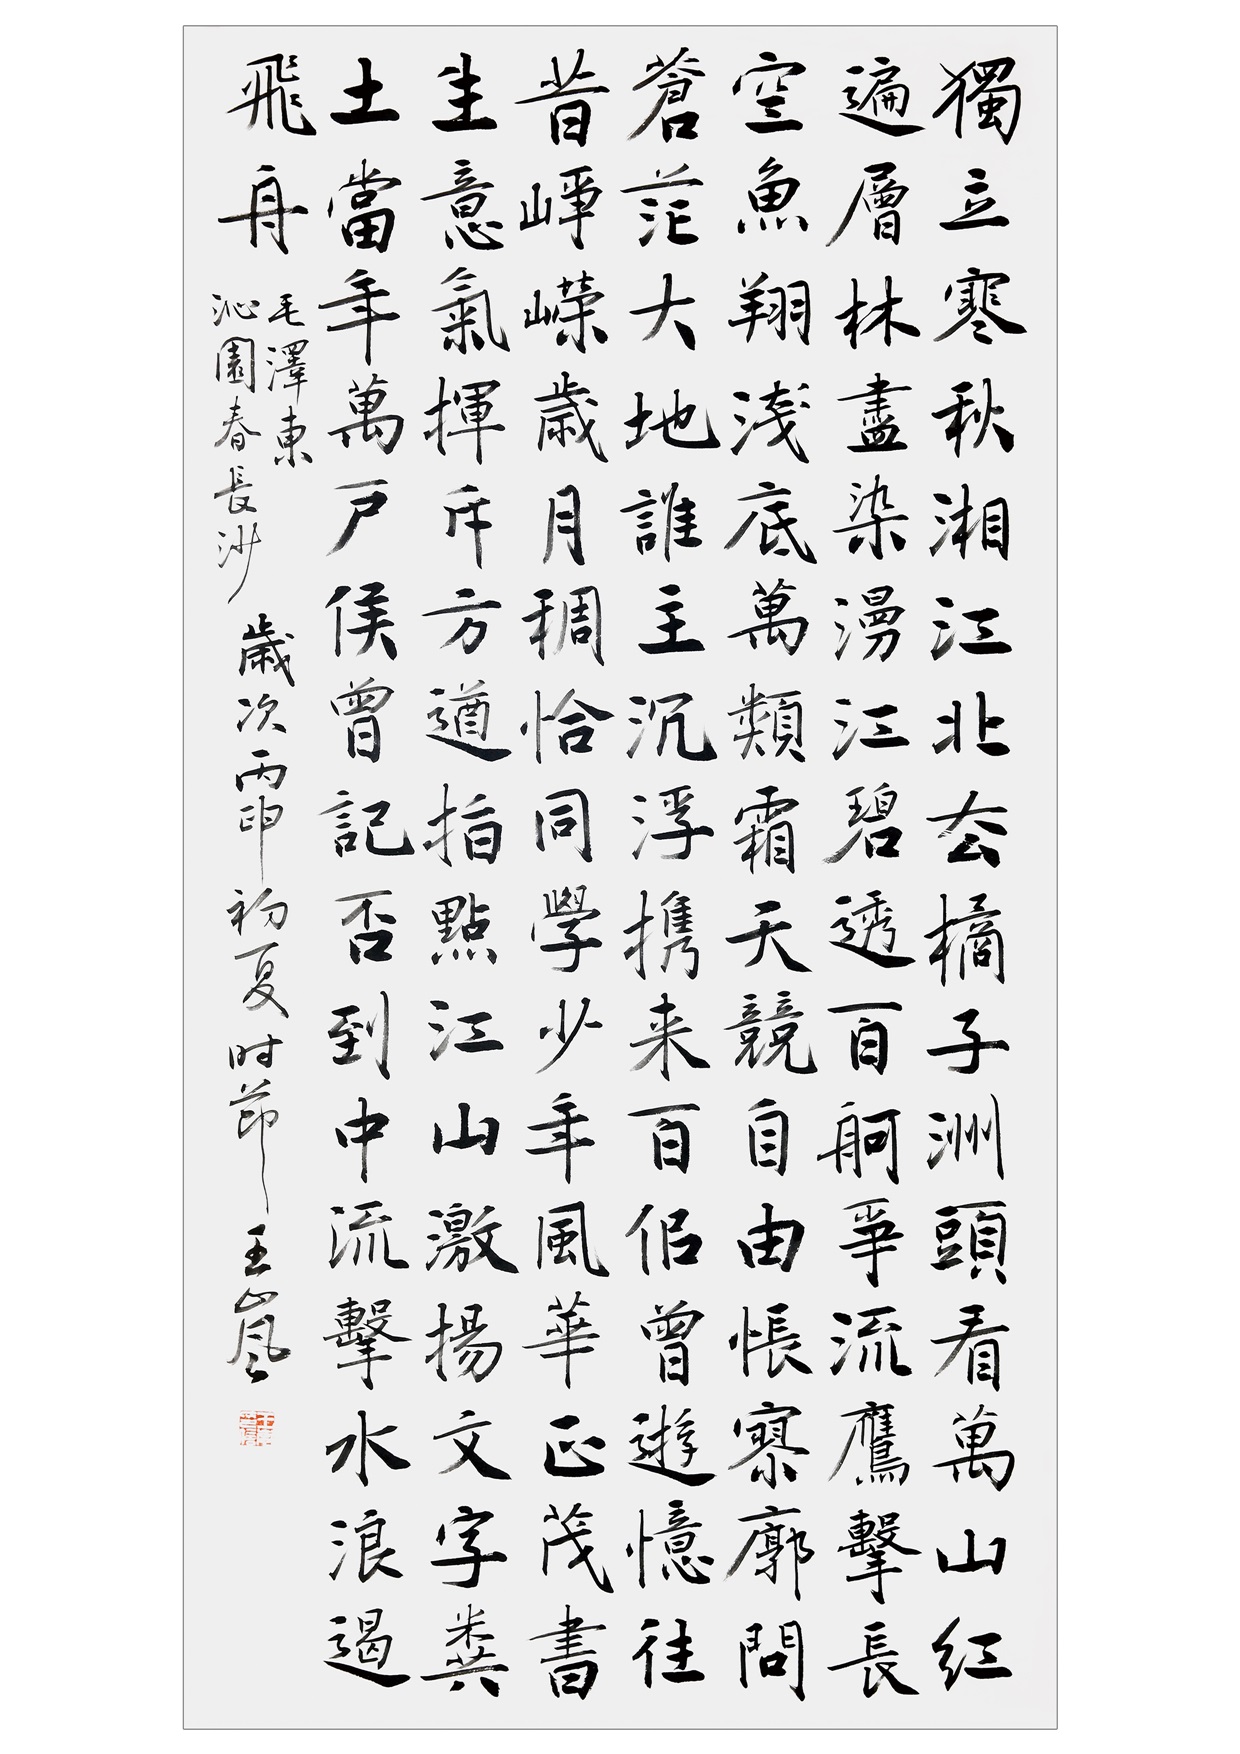 獨立寒秋湘江北去橘子洲頭看萬山紅
遍層林盡染漫江碧透百舸爭流鷹擊長
空魚翔淺底萬類霜天競自由悵寥廓問
蒼茫大地誰主沉浮携来百侶曾遊憶往
昔崢嶸歲月稠恰同學少年風華正茂書
生意氣揮斥方遒指點江山激揚文字糞
土當年萬戶侯曾記否到中流擊水浪遏
飛舟
毛澤東
沁園春長沙
歲次丙申初夏时節王山嵐